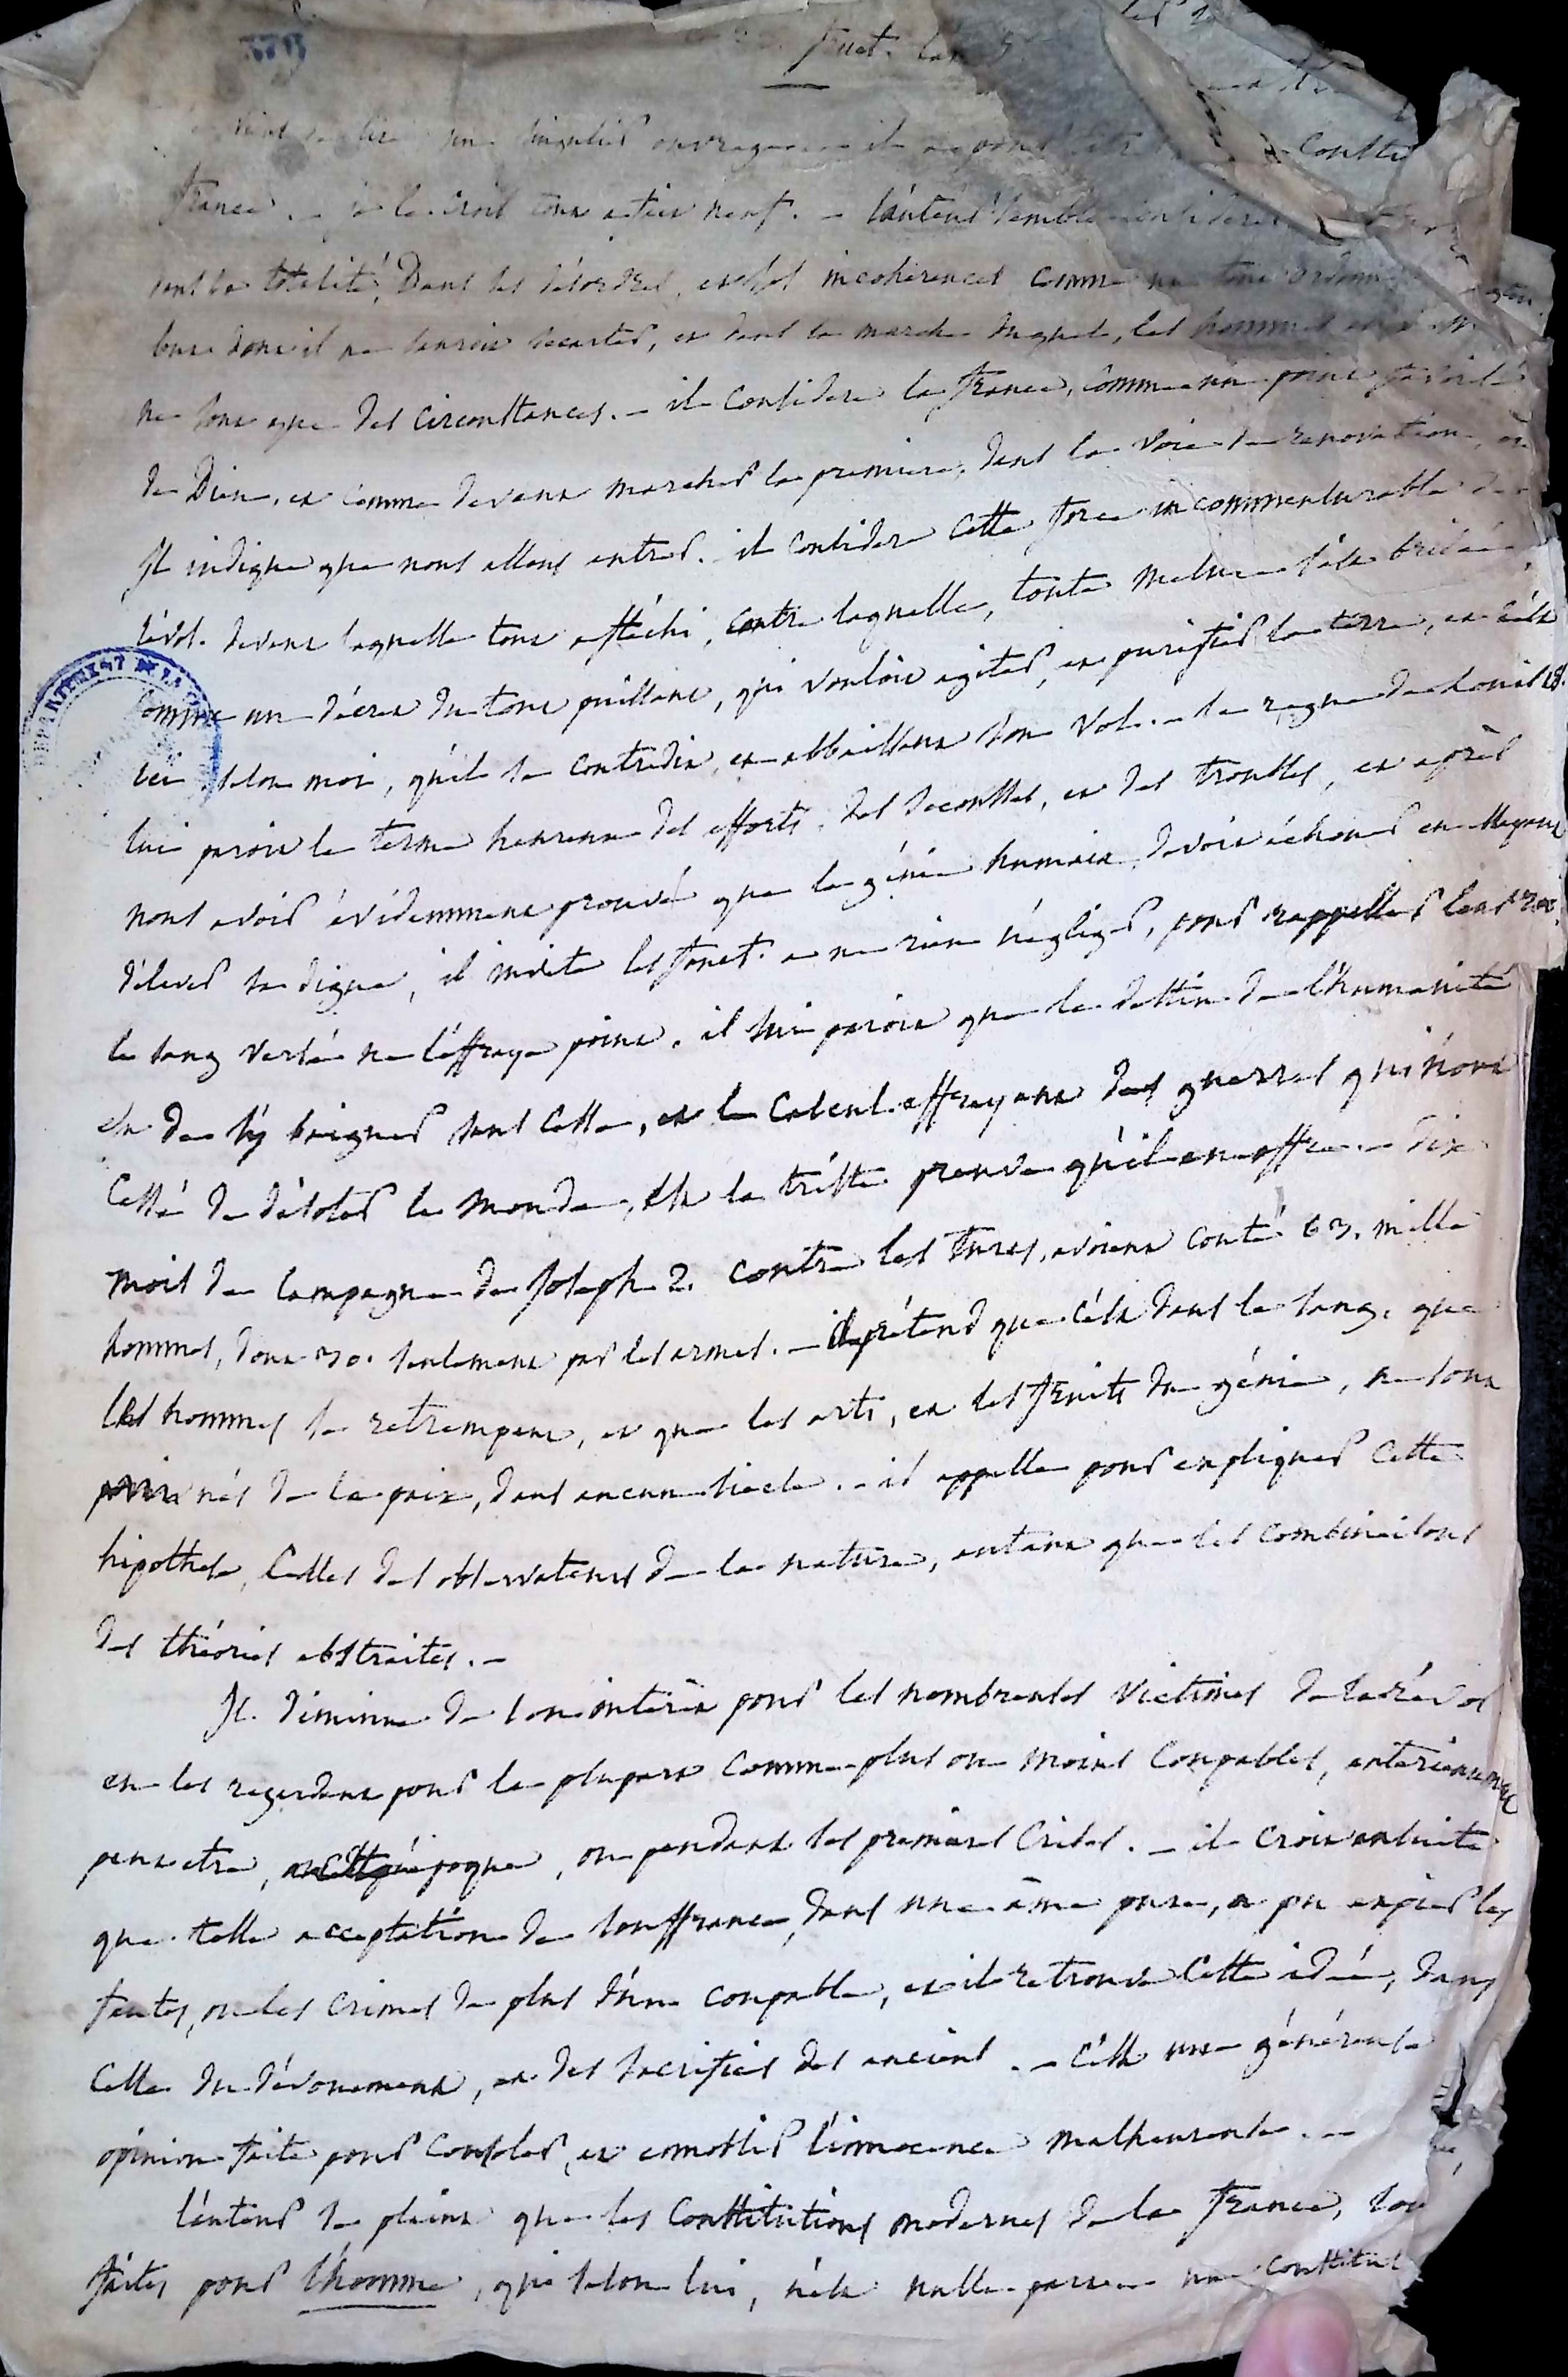 fruct. l'an 5
un singulier ouvrage il a pour titre
france. – je le crois tout à fait neuf. – l'auteur semble considérer
dans la totalité, Dans les désordres, et les incohérences comme un tout ordonné
dont il ne sauroit s'écarter, et dans la marche duquel, les hommes
ne sont que des circonstances. – il considere la france, comme un point favorisé
de Dieu, et comme devant marcher la premiere, dans la voie de renovation, où
Il indique que nous allons entrer. il considere cette force incommensurable de
révol. devant laquelle tout a fléchi, contre laquelle, toute mesure s'est brisée,
comme un décret du tout puissant, qui vouloit agiter, et purifier la terre, et c'est
ici selon moi, qu'il se contredit, en abbaissant son vol. – le regne de Louis 18.
lui paroit le terme heureux des efforts, des secousses, et des troubles, et après
nous avoir évidemment prouvé que le génie humain, devoit échouer en essayant
d'élever sa digue, il invite les fonct. à ne rien négliger, pour rappeller leur roi.
le sang versé ne l'effraye point. il lui paroit que le destin de l'humanité
est de s'y baigner sans cesse, et le calcul effrayant des guerres qui n'ont
cessé de désoler le monde, est la triste preuve qu'il en offre. – dix
mois de campagne de Joseph 2. contre les Turcs, avoient couté 63. mille
hommes, dont 30. seulement par les armes. – il prétend que c'est dans le sang, que
les hommes se retrempent, et que les arts, et les fruits du génie, ne sont
point nés de la paix, dans aucun siècle. – il appelle pour expliquer cette
hipothese, celles des observateurs de la nature, autant que les combinaisons
des théories abstraites. –
Il diminue de son intérêt pour les nombreuses victimes de la révol
en les regardant pour la plupart comme plus ou moins coupables, anterieurement
peut etre, à cette époque, ou pendant les premieres crises. – il croit ensuite
que telle acceptation de souffrance, dans une âme pure, a pu expier les
fautes, ou les crimes de plus d'un coupable, et il retrouve cette idée, dans
celle du dévouement, et des sacrifices des anciens. – c'est une généreuse
opinion faite pour consoler, et ennoblir l'innocence malheureuse. –
l'auteur se plaint que les Constitutions modernes de la france, sont
faites pour l'homme, qui selon lui, n'est nulle part – une constitut